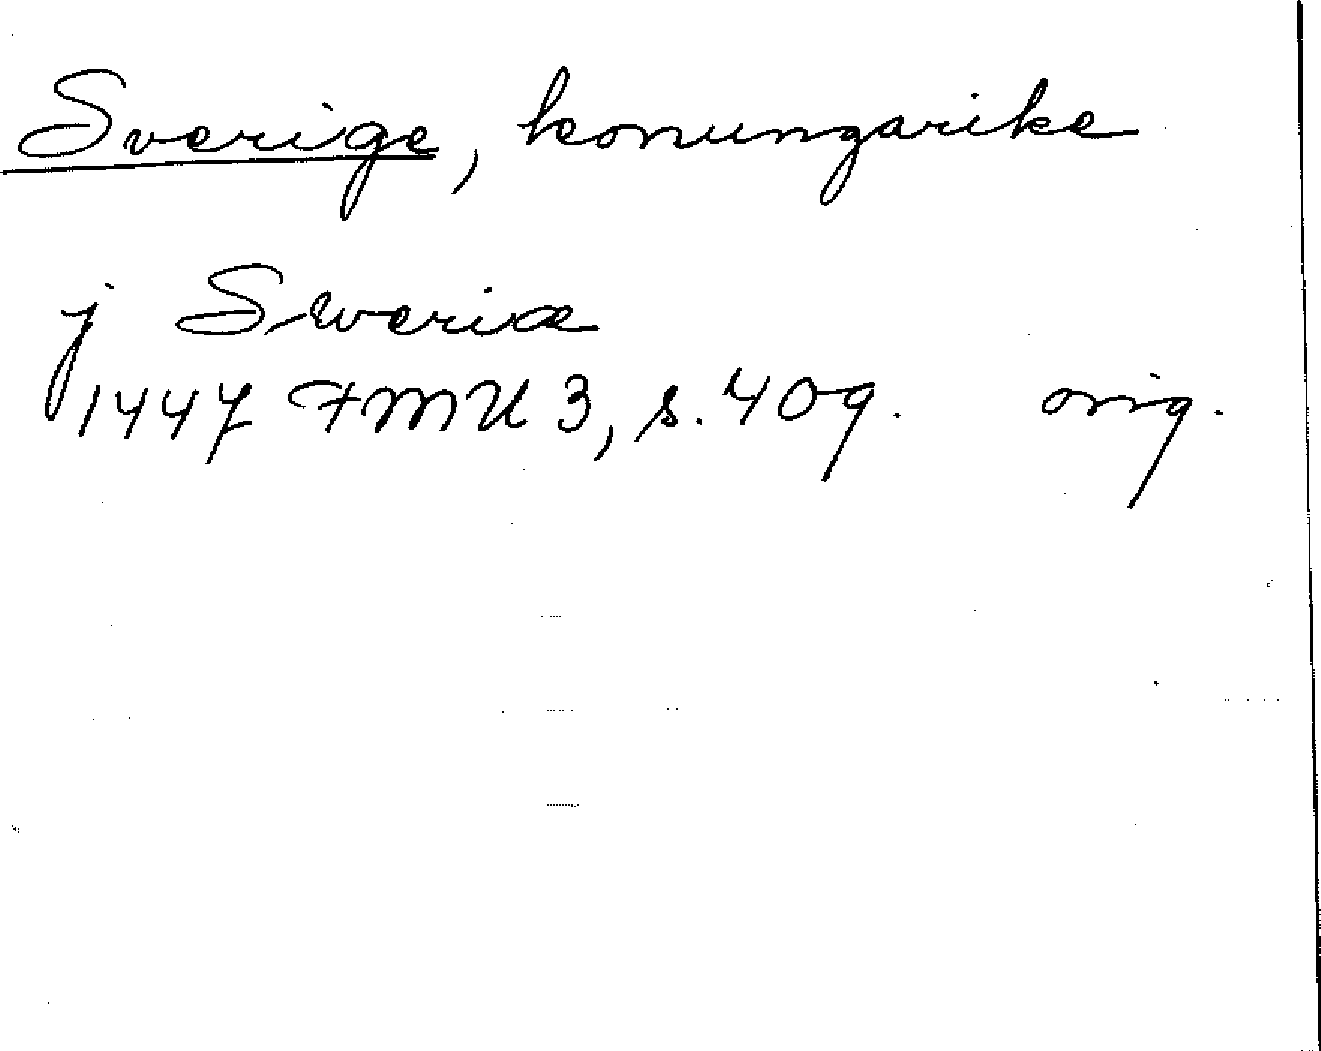 Sverige, konungarike
j Sweriæ
1447 FMU 3, s. 409. orig.